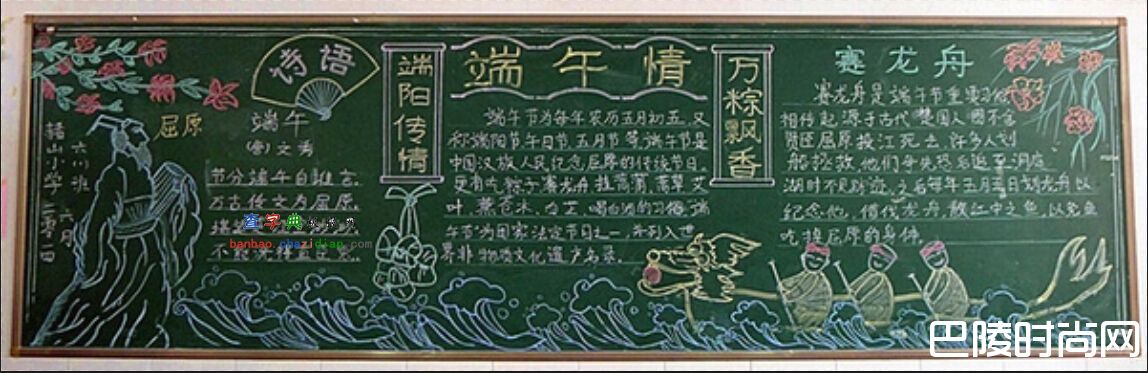 诗语
屈原
端午
(唐)文秀
节分端午自谁言,
万古传文为屈原。
六(1)班 六月
端阳传情
端午情
端午节为每年农历五月初五,又
称端阳节、午日节、五月节等,端午节是
中国汉族人民纪念屈原的传统节日,
更有吃粽子,赛龙舟,挂菖蒲、蒿草、艾
叶,薰苍术、白芷,喝雄黄酒的习俗。端
午节为国家法定节日之一,并列入世
界非物质文化遗产名录。
万粽飘香
赛龙舟
赛龙舟是端午节重要习俗
相传起源于古代楚国人因不舍
贤臣屈原投江死去,许多人划
船拯救。他们争先恐后追至洞庭
湖时不见踪迹,之后每年五月五日划龙舟以
纪念他,借划龙舟驱散江中之鱼,以免鱼
吃掉屈原的身体。
查字典
banbao.chazidian.com
巴陵时尚网